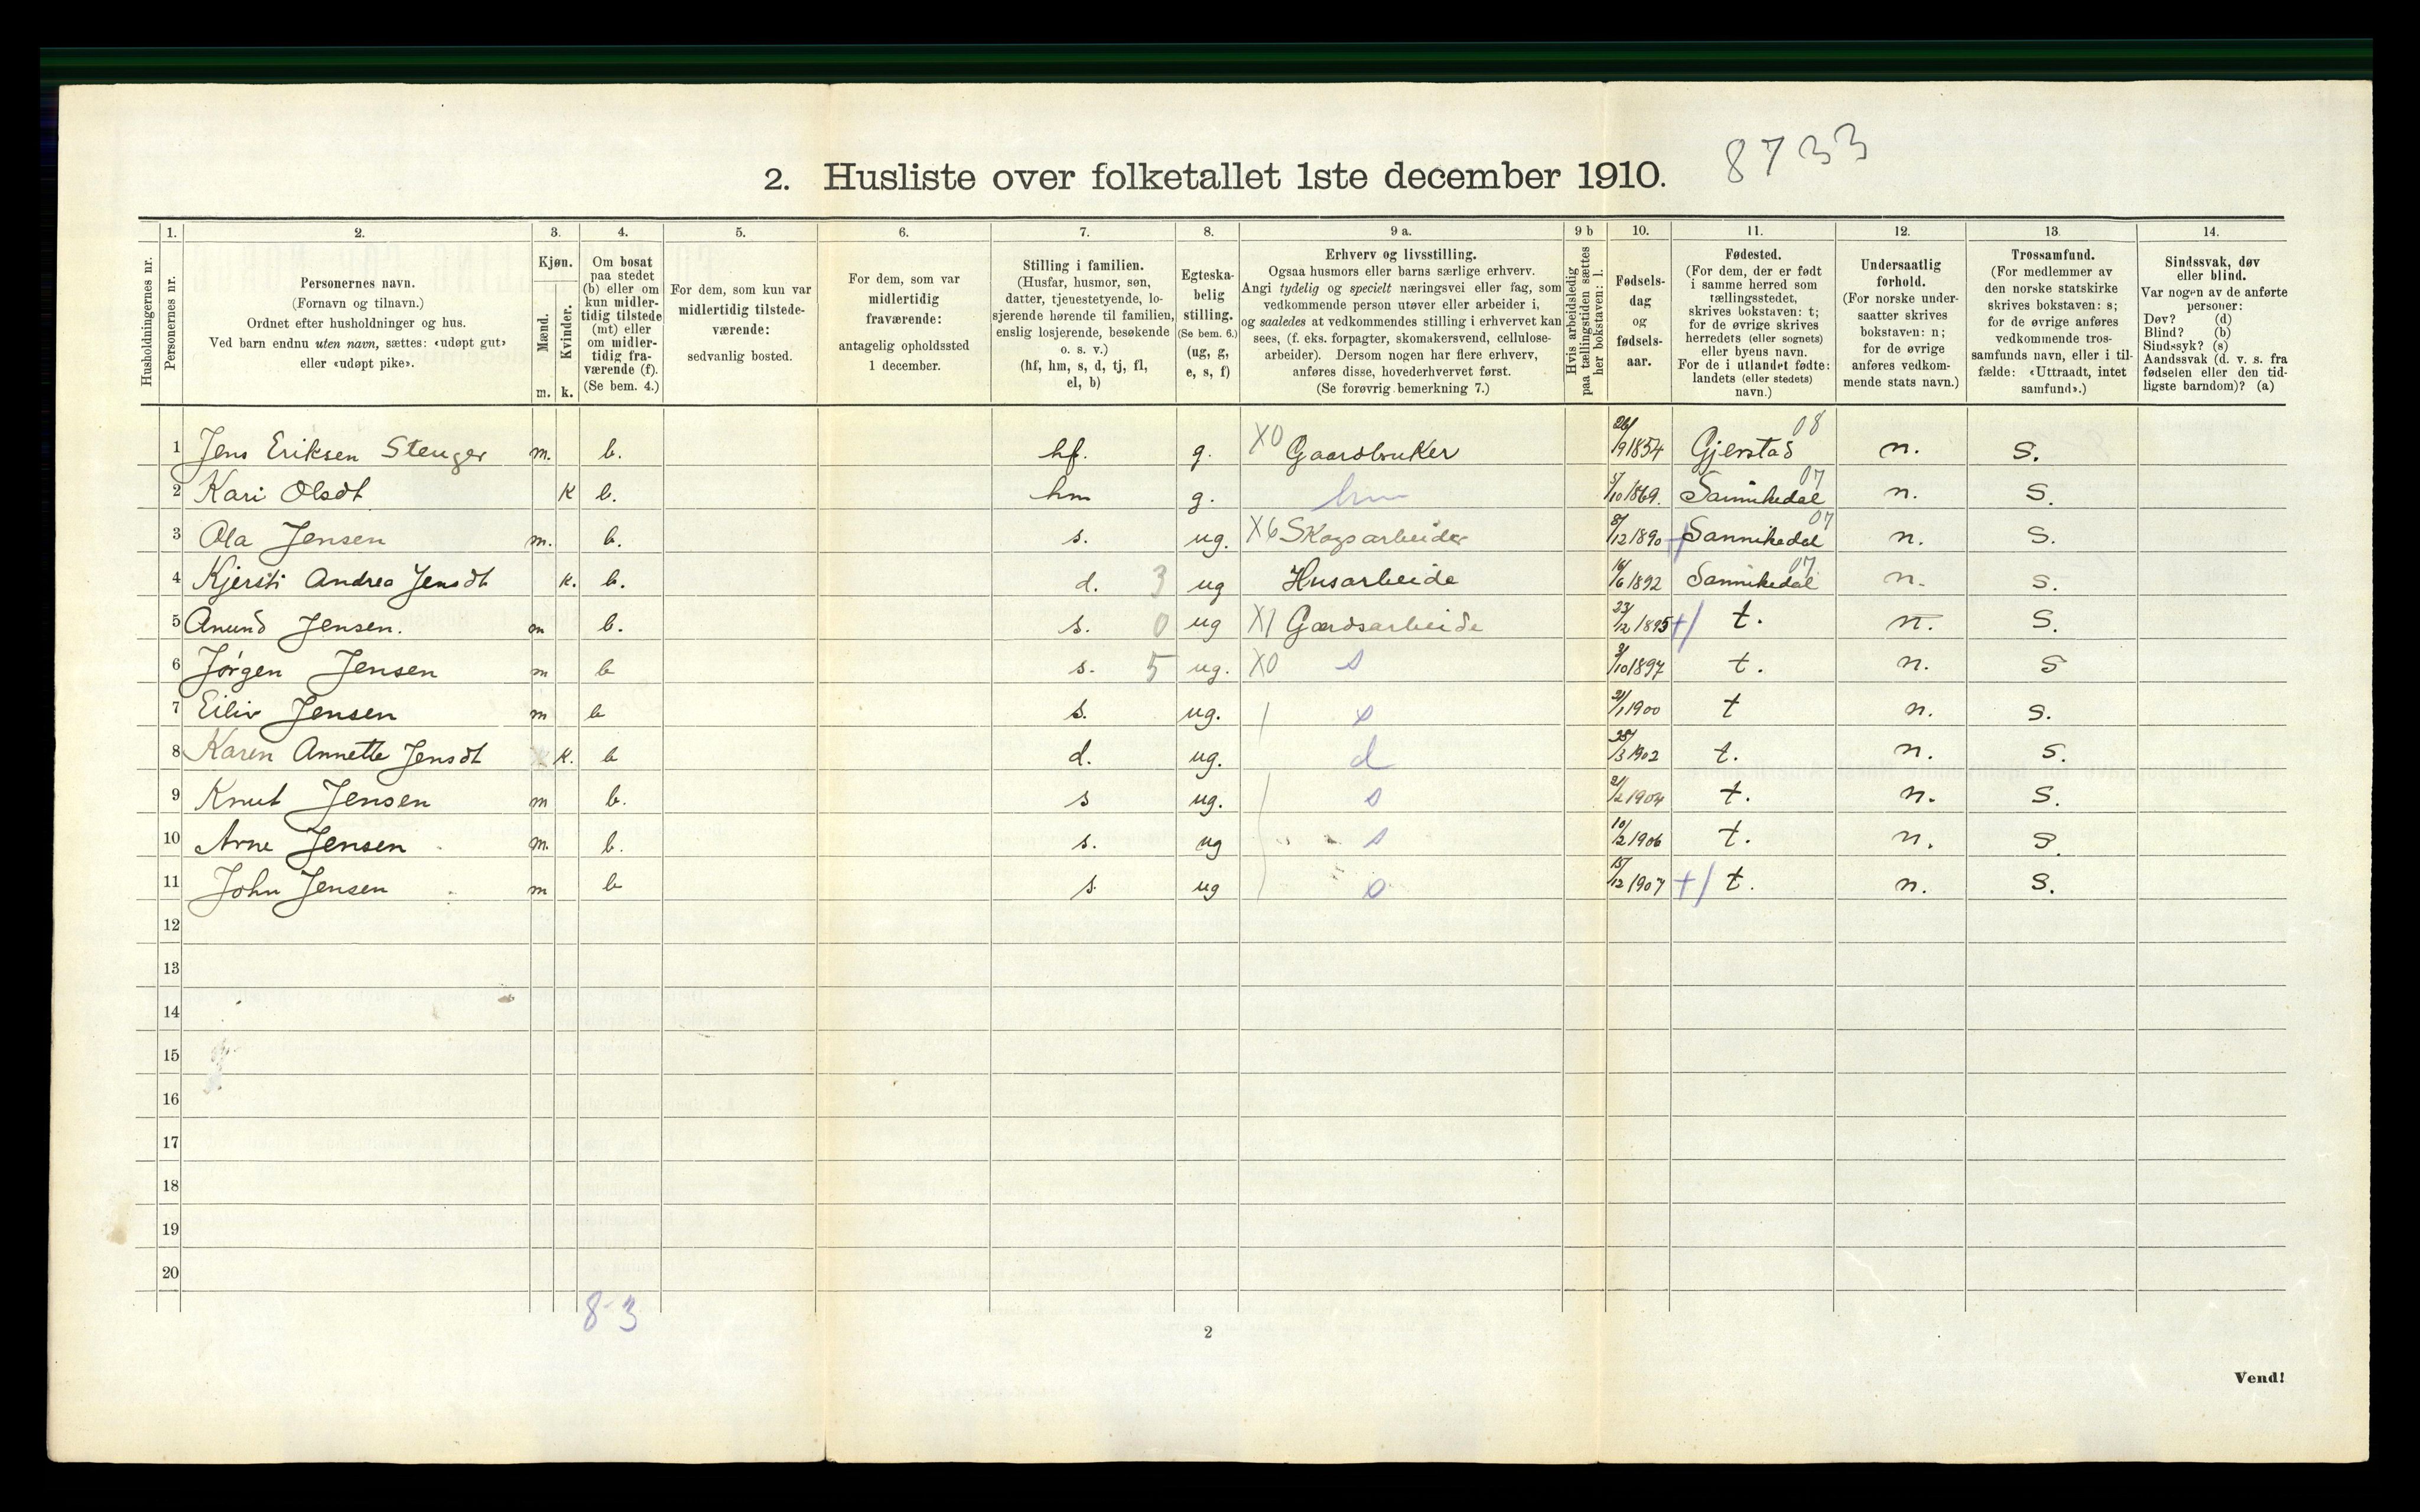 8733
2. Husliste over folketallet 1ste december 1910.
Husholdningernes nr.
1.
Personernes nr.
2.
Personernes navn.
(Fornavn og tilnavn.)
Ordnet efter husholdninger og hus.
Ved barn endnu uten navn, sættes: «udøpt gut»
eller «udøpt pike».
3.
Kjøn.
Mænd.
Kvinder.
m. k.
4.
Om bosat
paa stedet
(b) eller om
kun midler-
tidig tilstede
(mt) eller
om midler-
tidig fra-
værende (f).
(Se bem. 4.)
5.
For dem, som kun var
midlertidig tilstede-
værende:
sedvanlig bosted.
6.
For dem, som var
midlertidig
fraværende:
antagelig opholdssted
1 december.
7.
Stilling i familien.
(Husfar, husmor, søn,
datter, tjenestetyende, lo-
sjerende hørende til familien,
enslig losjerende, besøkende
o. s. v.)
(hf, hm, s, d, tj, fl,
el, b)
8.
Egteska-
belig
stilling.
(Se bem. 6.)
(ug, g,
e, s, f)
9 a.
Erhverv og livsstilling.
Ogsaa husmors eller barns særlige erhverv.
Angi tydelig og specielt næringsvei eller fag, som
vedkommende person utøver eller arbeider i,
og saaledes at vedkommendes stilling i erhvervet kan
sees, (f. eks. forpagter, skomakersvend, cellulose-
arbeider). Dersom nogen har flere erhverv,
anføres disse, hovederhvervet først.
(Se forøvrig bemerkning 7.)
9 b
Hvis arbeidsledig
paa tællingstiden sættes
her bokstaven: l.
10.
Fødsels-
dag
og
fødsels-
aar.
11.
Fødested.
(For dem, der er født
i samme herred som
tællingsstedet,
skrives bokstaven: t;
for de øvrige skrives
herredets (eller sognets)
eller byens navn.
For de i utlandet fødte:
landets (eller stedets)
navn.)
12.
Undersaatlig
forhold.
(For norske under-
saatter skrives
bokstaven: n;
for de øvrige
anføres vedkom-
mende stats navn.)
13.
Trossamfund.
(For medlemmer av
den norske statskirke
skrives bokstaven: s;
for de øvrige anføres
vedkommende tros-
samfunds navn, eller i til-
fælde: «Uttraadt, intet
samfund».)
14.
Sindssvak, døv
eller blind.
Var nogen av de anførte
personer:
Døv? (d)
Blind? (b)
Sindssyk? (s)
Aandssvak (d. v. s. fra
fødselen eller den tid-
ligste barndom)? (a)
1 Jens Eriksen Stenger m. b. hf. g. X0 Gaardbruker 26/9 1854 Gjerstad 08 n. s.
2 Kari Olsdt k b. hm g. hm 5/10 1869. Sannikedal 07 n. s.
3 Ola Jensen m. b. s. ug. X6 Skogsarbeider 8/12 1890 Sannikedal 07 n. s.
4 Kjersti Andrea Jensdt k. b. d. 3 ug Husarbeide 16/6 1892 Sannikedal 07 n. s.
5 Anund Jensen. m b. s. 0 ug X1 Gardsarbeide 23/12 1895 +/ t. n. s.
6 Jørgen Jensen m b s. 5 ug. X0 s 3/10 1897 t. n. s
7 Eiliv Jensen m b s. ug. s 31/1 1900 t n. s.
8 Karen Annette Jensdt k. b d. ug. d 25/3 1902 t. n. s.
9 Knut Jensen m b. s ug. s 2/2 1904 t. n. s.
10 Arne Jensen m. b. s. ug s 10/2 1906 t. n. s.
11 John Jensen m b s. ug s 15/12 1907 +/ t. n. s.
12
13
14
15
16
17
18
19
20
8-3
2
Vend!